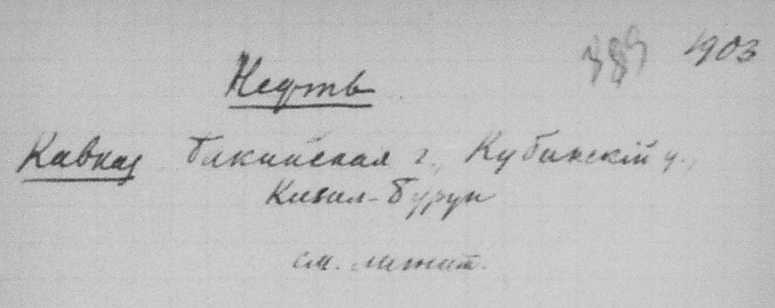 389 1903
Нефть
Кавказ Бакинская г., Кубинскій у.,
Кизил-Бурун
см. лигнит.